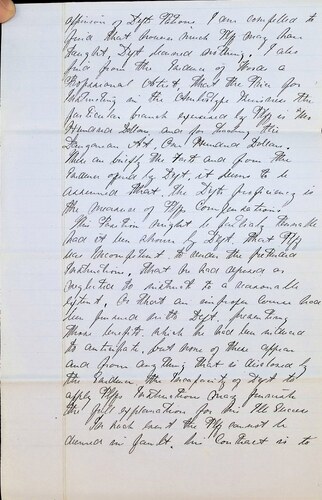 opinion of Deft Witness. I am compelled to
find that however much Plff may have
taught, Deft learned nothing. I also
find from the Evidence of Woods a
Professional Artist, that the Price for
Instructing in the Ambrotype Business the
particular branch espoused by Plff is Two
Hundred Dollars and for teaching the
Daguerean Art, One Hundred Dollars.
This in brief the facts and from the
Evidence offered by Deft, it seems to be
assumed that the Defts proficiency is
the measure of Plffs Compensation.
This Position might be partially tenable
had it been shown by Deft. that Plff
was incompetent to render the pretended
Instructions. That he had refused or
neglected to instruct to a reasonable
extent. Or that an improper course had
been pursued with Deft. preventing
those benefits which he had been induced
to anticipate, but none of these appear
and from anything that is disclosed by
the Evidence the incapacity of Deft to
apply Plffs Instructions may furnish
the full explanation for his Ill Success
In such event the Plff cannot be
deemed in fault. his Contract is to